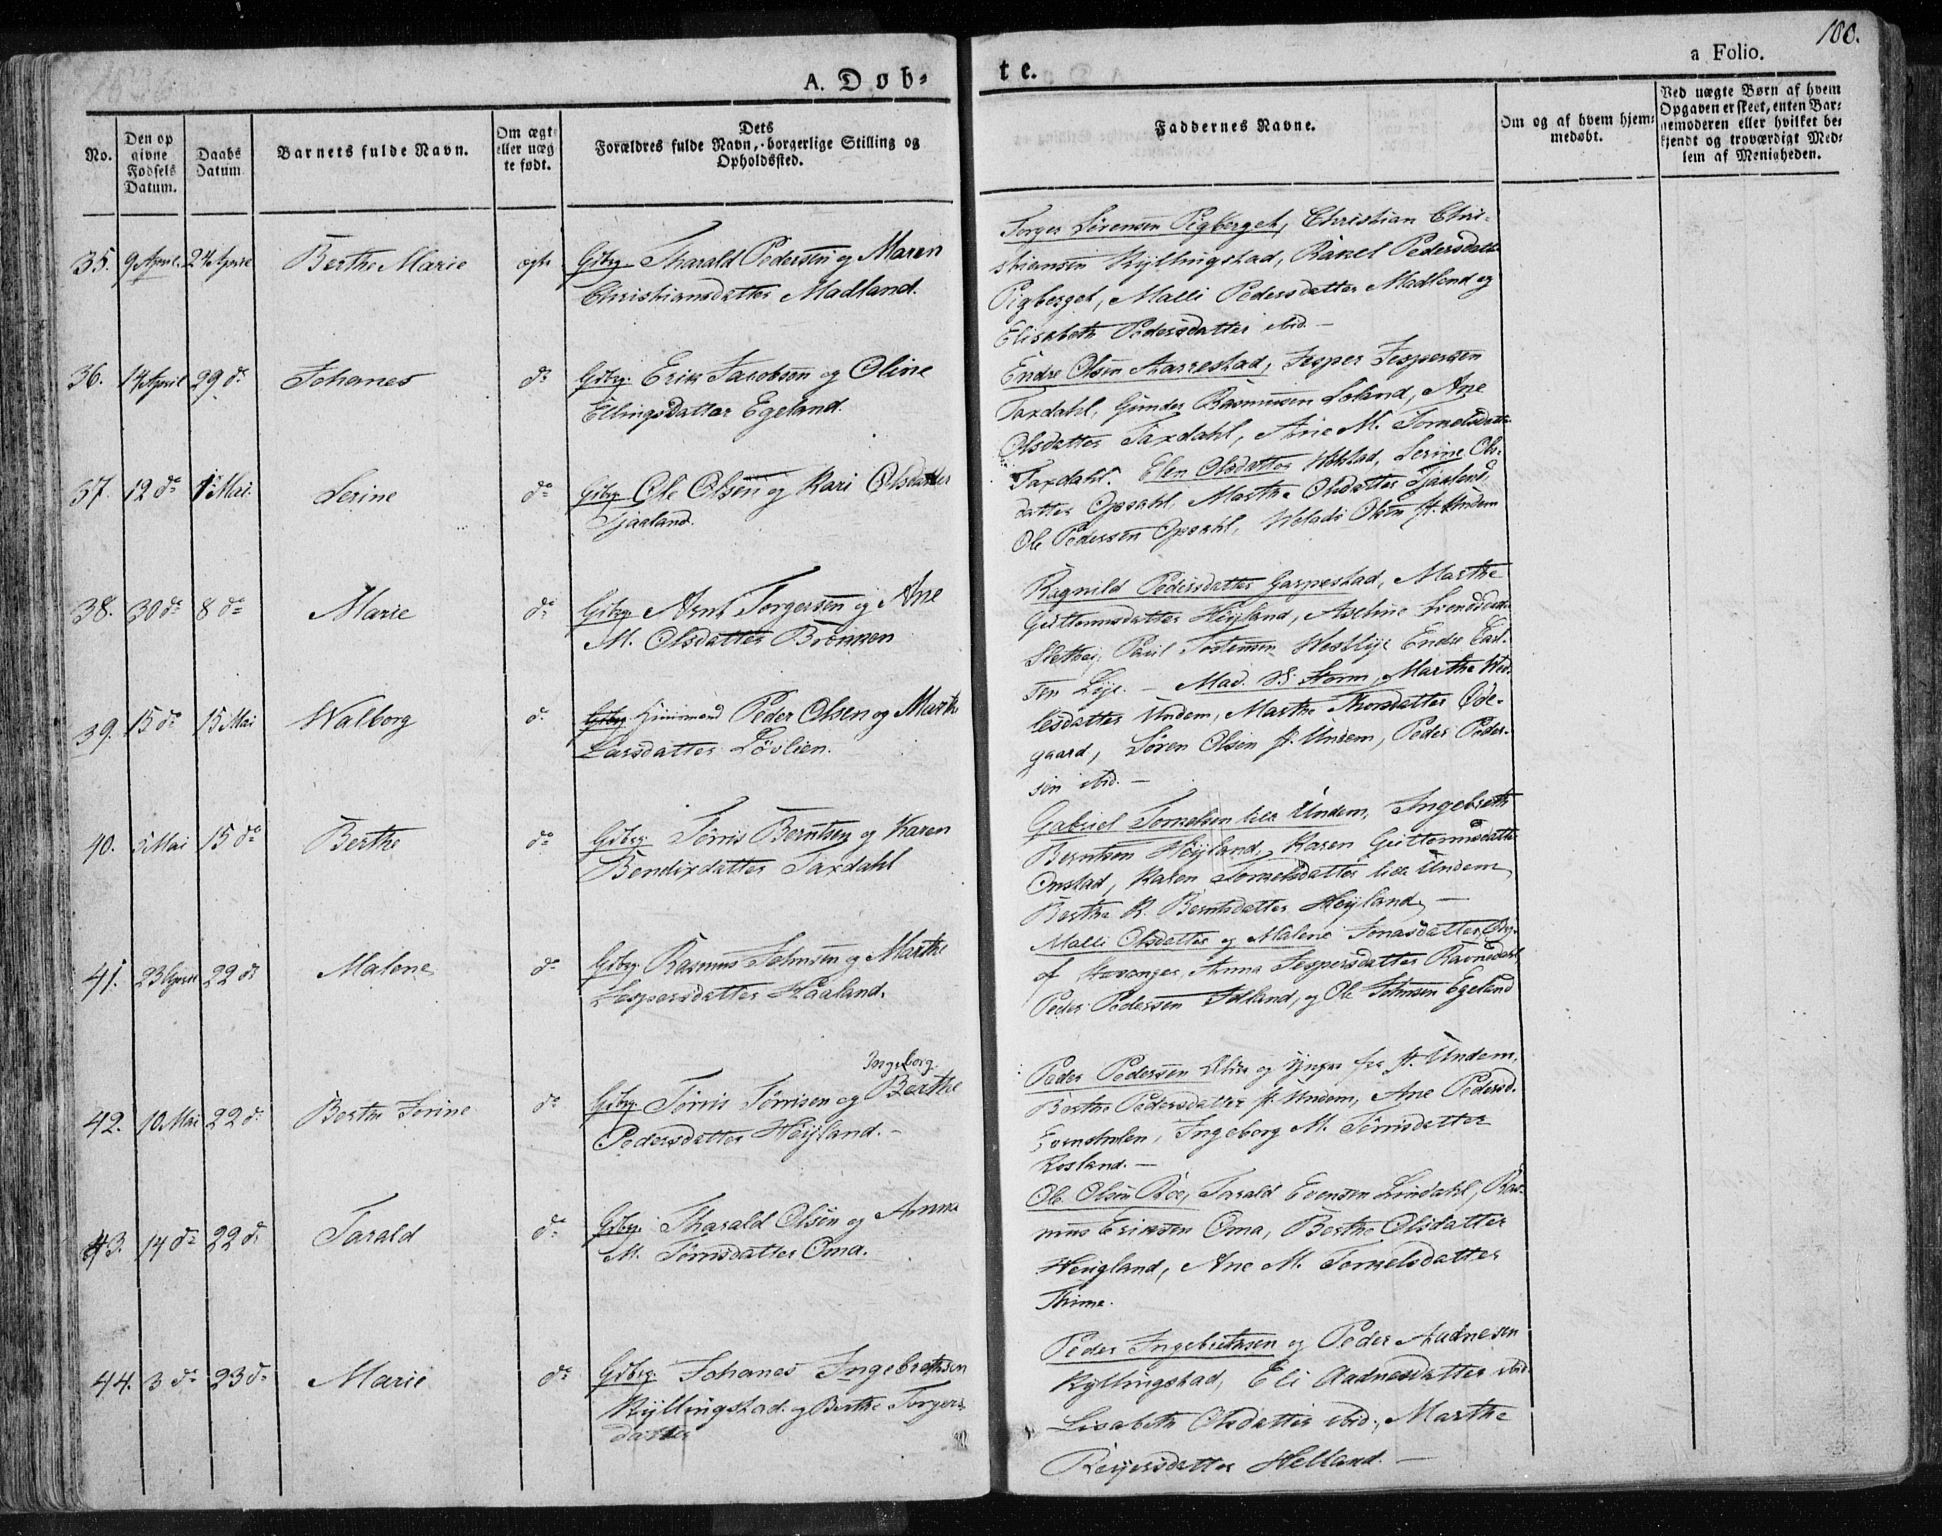 1836
A. Døb-
te.
a Folio.
100.
No.
Den op
givne
Fødsels
Datum.
Daabs
Datum
Barnets fulde Navn.
Om ægte
eller uæg
te født.
Dets
Forældres fulde Navn, borgerlige Stilling og
Opholdssted.
Faddernes Navne.
Om og af hvem hjem-
medøbt.
Ved uægte Børn af hvem
Opgaven er skeet, enten Bar-
nemoderen eller hvilket be-
kjendt og troværdigt Med-
lem af Menigheden.
35. 9 April. 24 April Berthe Marie ægte Gdbrg. Tharald Pedersen og Maren
Christiansdatter Madland.
Torger Sørensen Pigberget, Christian Chri-
stiansen Kyllingstad, Rakel Pedersdatt
Pigberget, Malli Pedersdatter Madland og
Elisabeth Pedersdatter ibid. —
36. 14 April 29 do Johanes do Gdbrg. Erik Jacobsen og Oline
Ellingsdatter Egeland.
Endre Olsen Aarrestad, Jesper Jespersen
Taxdahl, Gunder Rasmussen Loland, Ane
Olsdatter Taxdahl, Ane M. Tormelsdatter
Taxdahl.
37. 12 do 1 Mai. Serine do Gdbrg Ole Olsen og Kari Olsdatter
Tjaaland.
Elen Olsdatter Solstad, Serine Ols-
datter Opsahl, Marthe Olsdatter Tjaaland,
Ole Pedersen Opsahl, Welads Olsen st. Undem
38. 30 do 8 do Marie do Gdbrg Arnt Torgersen og Ane
M. Olsdatter Brønnen
Ragnild Pedersdatter Garpestad, Marthe
Guttormsdatter Høyland, Axeline Svendsdatter
Slettebø, Paul Tostensen Westlye Endre Carl-
sen Lye. —
39. 15 do 15 Mai Walborg do Huusmand Peder Olsen og Marthe
Larsdatter Løvlien.
Mad. S. Storm, Marthe Wel-
lesdatter Undem, Marthe Thorsdatter Øde-
gaard, Søren Olsen st. Undem, Peder Peder-
sen ibid. —
40. 5 Mai 15 do Berthe do Gdbrg Tørris Berntsen og Karen
Bendixdatter Taxdahl
Gabriel Tormelsen lille Undem, Ingebreth
Berntsen Høyland, Karen Guttormsdatter
Onstad, Karen Tormelsdatter lille Undem
Berthe K. Berntsdatter Høyland, —
41. 23 April 22 do Malene do Gdbrg Rasmus Johnsen og Marthe
Jespersdatter Haaland.
Malli Olsdatter og Malene Jonasdatter
af Stavanger, Anna Jespersdatter Ravnedahl
Peder Pedersen Idland, og Ole Johnsen Egeland
42. 10 Mai 22 do Berthe Serine do Gdbrg Tørris Tørrisen og Berthe
Ingeborg
Pedersdatter Høyland. —
Peder Pedersen ældre og yngre fra st. Undem,
Berthe Pedersdatter st. Undem, Ane Pedersd.
Evenstølen, Ingeborg M. Tørrisdatter
Rosland. —
43. 14 do 22 do Tarald do Gdbrg. Tharald Olsen og Anna
M. Tørrisdatter Oma.
Ole Olsen Røe, Tarald Evensen Lindahl, Ras-
mus Eriksen Oma, Berthe Olsdatter
Heigland, Ane M. Tormelsdatter
Thime.
44. 3 do 23 do Marie do Gdbrg. Johanes Ingebrethsen
Kyllingstad og Berthe Torgers
datter
Peder Ingebrethsen og Peder Aadnesen
Kyllingstad, Eli Aadnesdatter ibid
Lisabeth Olsdatter ibid, Marthe
Reiersdatter Helland. —